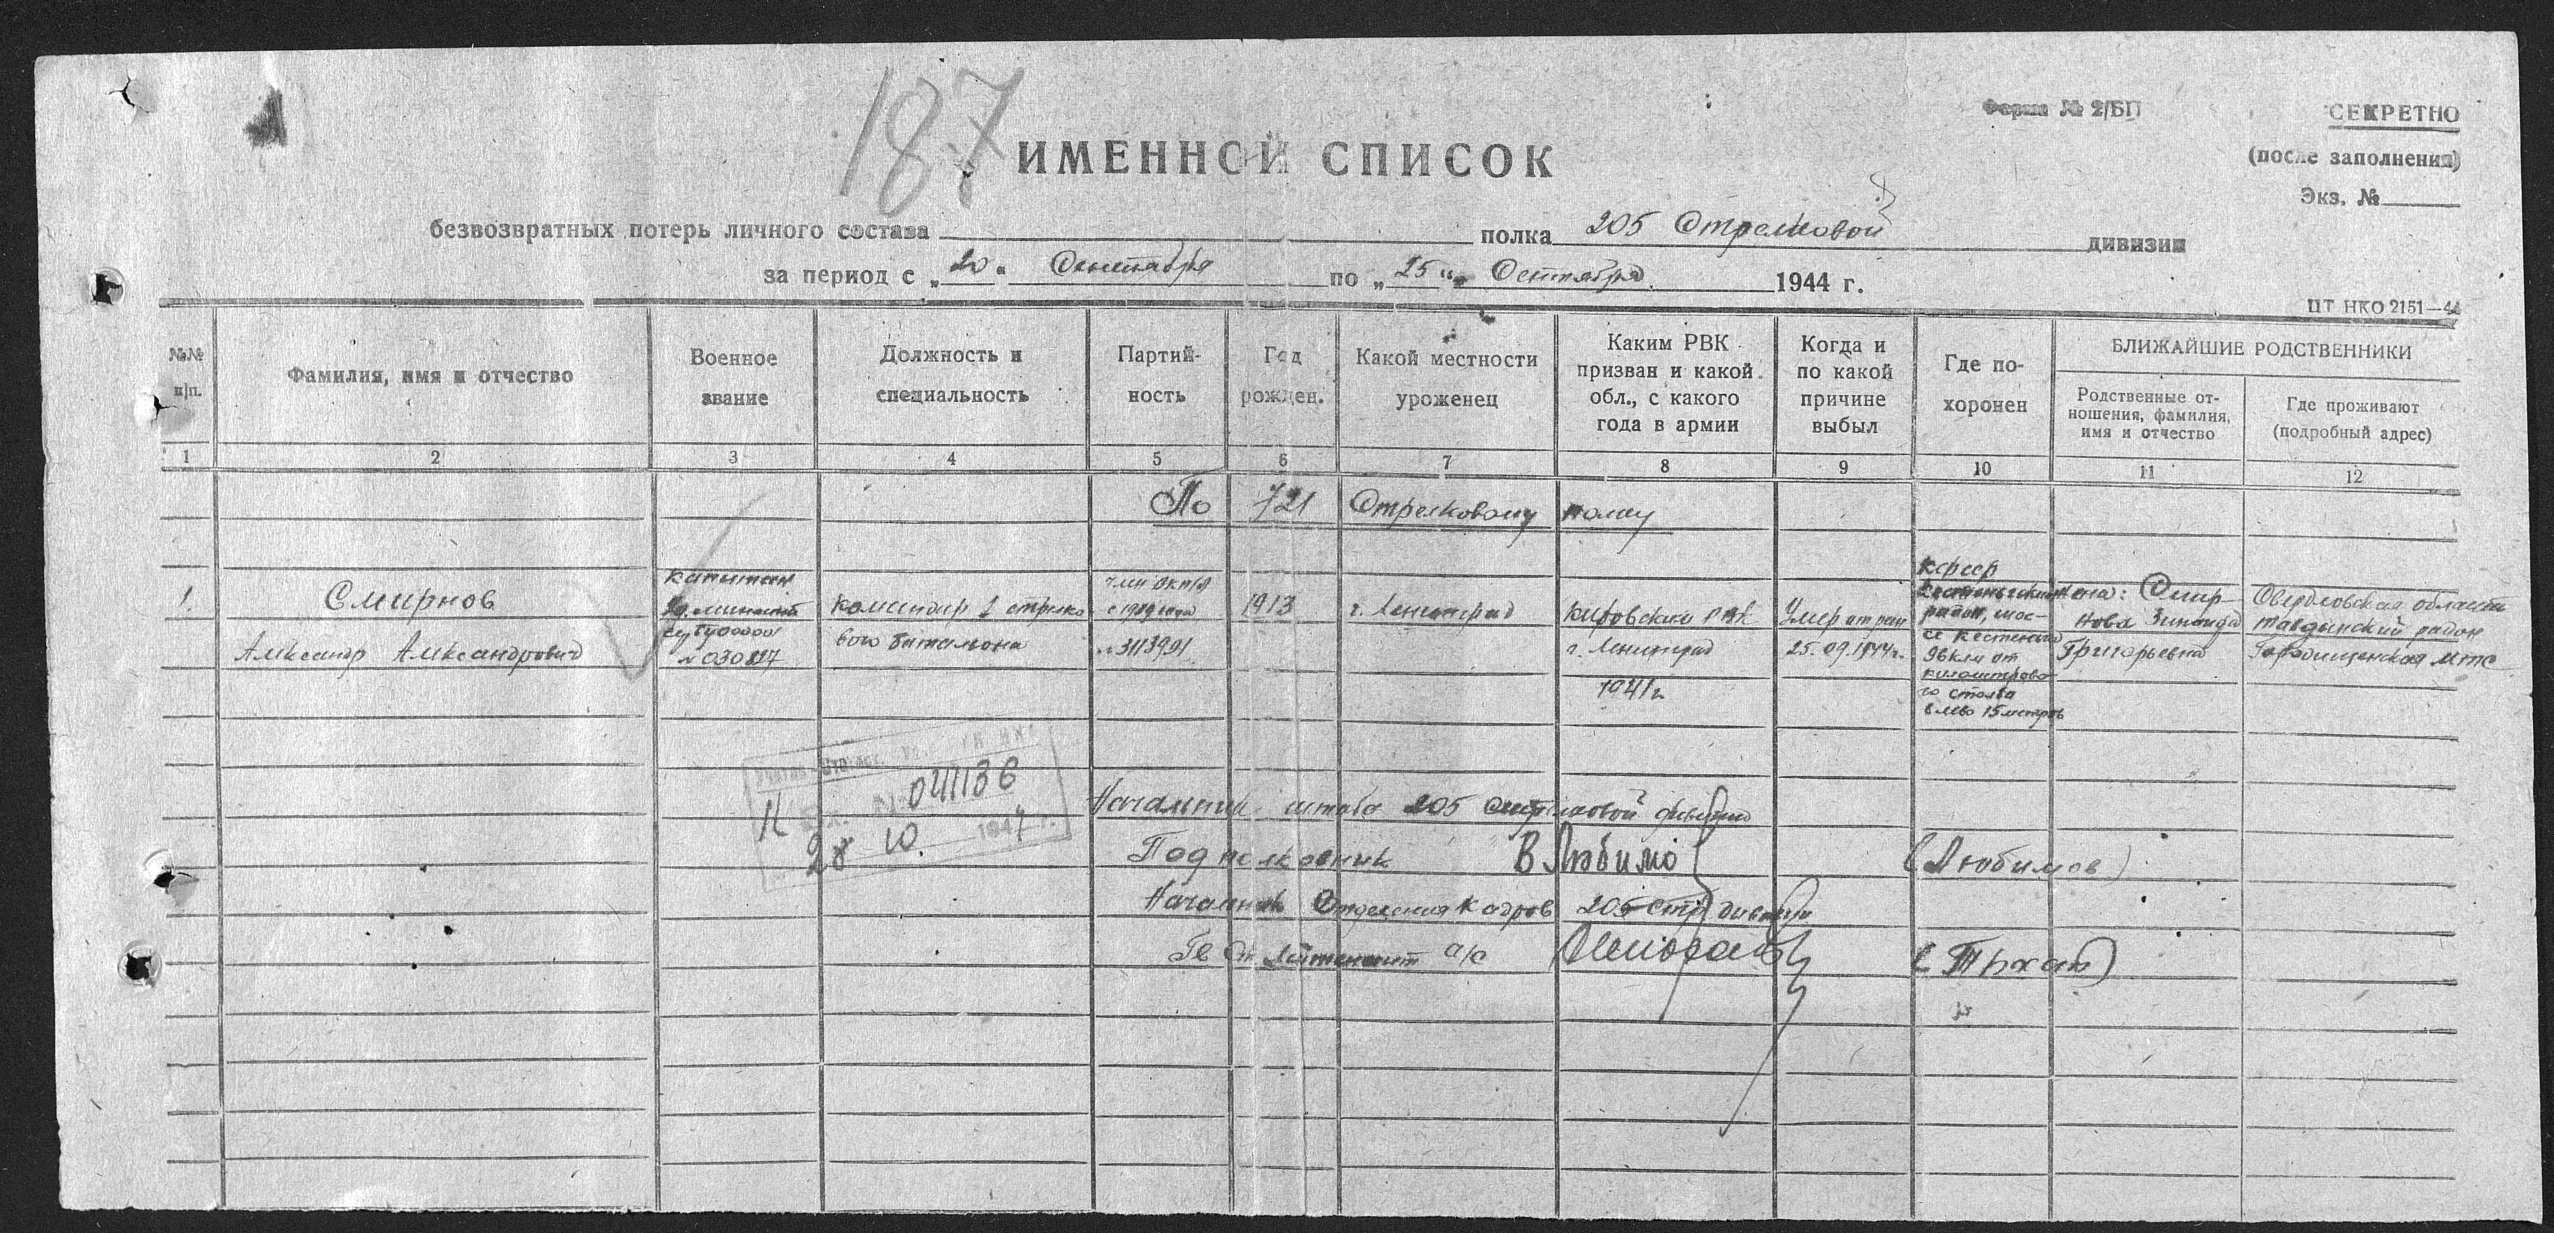 187
Форма № 2/БП
СЕКРЕТНО
(после заполнения)
Экз. №
ИМЕННОЙ СПИСОК
безвозвратных потерь личного состава полка 205 Стрелковой дивизии
за период с „20“ Сентября по „25“ Сентября 1944 г.
ЦТ НКО 2151—44
№№ п/п.
Фамилия, имя и отчество
Военное звание
Должность и специальность
Партийность
Год рожден.
Какой местности уроженец
Каким РВК призван и какой обл., с какого года в армии
Когда и по какой причине выбыл
Где похоронен
БЛИЖАЙШИЕ РОДСТВЕННИКИ
Родственные отношения, фамилия, имя и отчество
Где проживают (подробный адрес)
1 2 3 4 5 6 7 8 9 10 11 12
По 721 Стрелковому полку
1.
Смирнов
Александр Александрович
капитан
командир 1 стрелкового батальона
член ВКП/б
с 1939 года
№ 3113991
1913
г. Ленинград
Кировским РВК
г. Ленинград
1941 г
Умер от ран
25.09.1944 г.
район, шоссе Кестеньга
км от
километрово
го столба
влево 15 метров
жена: Смир
нова Зинаида
Григорьевна
Свердловская область
Тавдинский район
Городищенская МТС
041136
28 10. 1944 г.
Начальник штаба 205 стрелковой дивизии
Подполковник В Любимо (Любимов)
Начальник Отделения кадров 205 стр дивизии
Гв Ст Лейтенант а/с